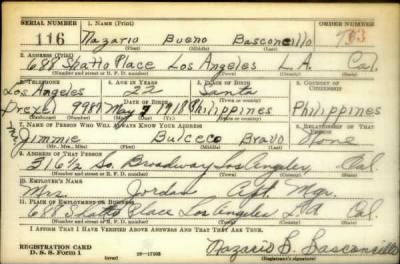 SERIAL NUMBER 1. NAME (Print) ORDER NUMBER (Print)
116 Nazario Bueno Basconcillo
(First) (Middle) (Last)
2. ADDRESS (Print)
688 Shatto Place Los Angeles L.A. Cal.
(Number and street or R. F. D. number) (Town) (County) (State)
3. TELEPHONE 4. AGE IN YEARS 5. PLACE OF BIRTH 6. COUNTRY OF CITIZENSHIP
Los Angeles 22 Santa
DATE OF BIRTH (Town or county)
Drexel 9989 May 9 1918 Philippines Philippines
(Exchange) (Number) (Mo.) (Day) (Yr.) (State or country)
7. NAME OF PERSON WHO WILL ALWAYS KNOW YOUR ADDRESS 8. RELATIONSHIP OF THAT PERSON
Mr. Jimmie Bravo None
(Mr., Mrs., Miss) (First) (Middle) (Last)
9. ADDRESS OF THAT PERSON
316½ So. Broadway Los Angeles Cal.
(Number and street or R. F. D. number) (Town) (County) (State)
10. EMPLOYER'S NAME
Mrs. Jordan Apt. Mgr.
11. PLACE OF EMPLOYMENT OR BUSINESS
688 Shatto Place Los Angeles L.A. Cal.
(Number and street or R. F. D. number) (Town) (County) (State)
I AFFIRM THAT I HAVE VERIFIED ABOVE ANSWERS AND THAT THEY ARE TRUE.
REGISTRATION CARD
D. S. S. Form 1 Nazario B. Basconcillo
(Registrant's signature)